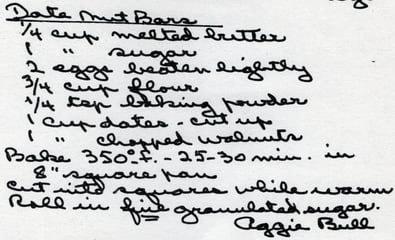 Date Nut Bars
1/4 cup melted butter
1 " sugar
2 eggs beaten lightly
3/4 cup flour
1/4 tsp baking powder
1 cup dates - cut up
1 " chopped walnuts
Bake 350° f. - 25-30 min. in
8" square pan
Cut into squares while warm
Roll in fine granulated sugar.
Aggie Bull